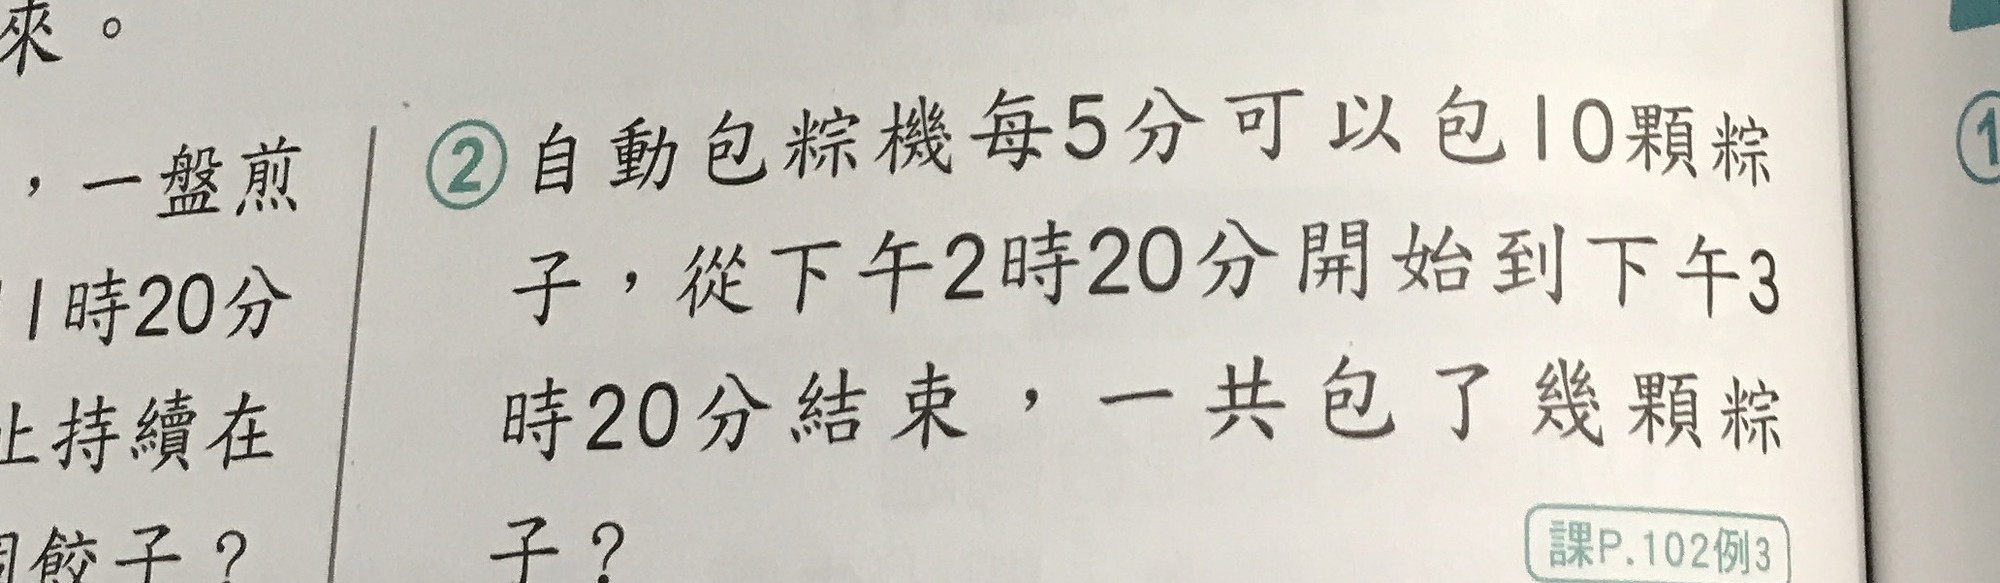 來。
，一盤煎
1時20分
止持續在
餃子？
②自動包粽機每5分可以包10顆粽
子，從下午2時20分開始到下午3
時20分結束，一共包了幾顆粽
子？
課P.102例3
①